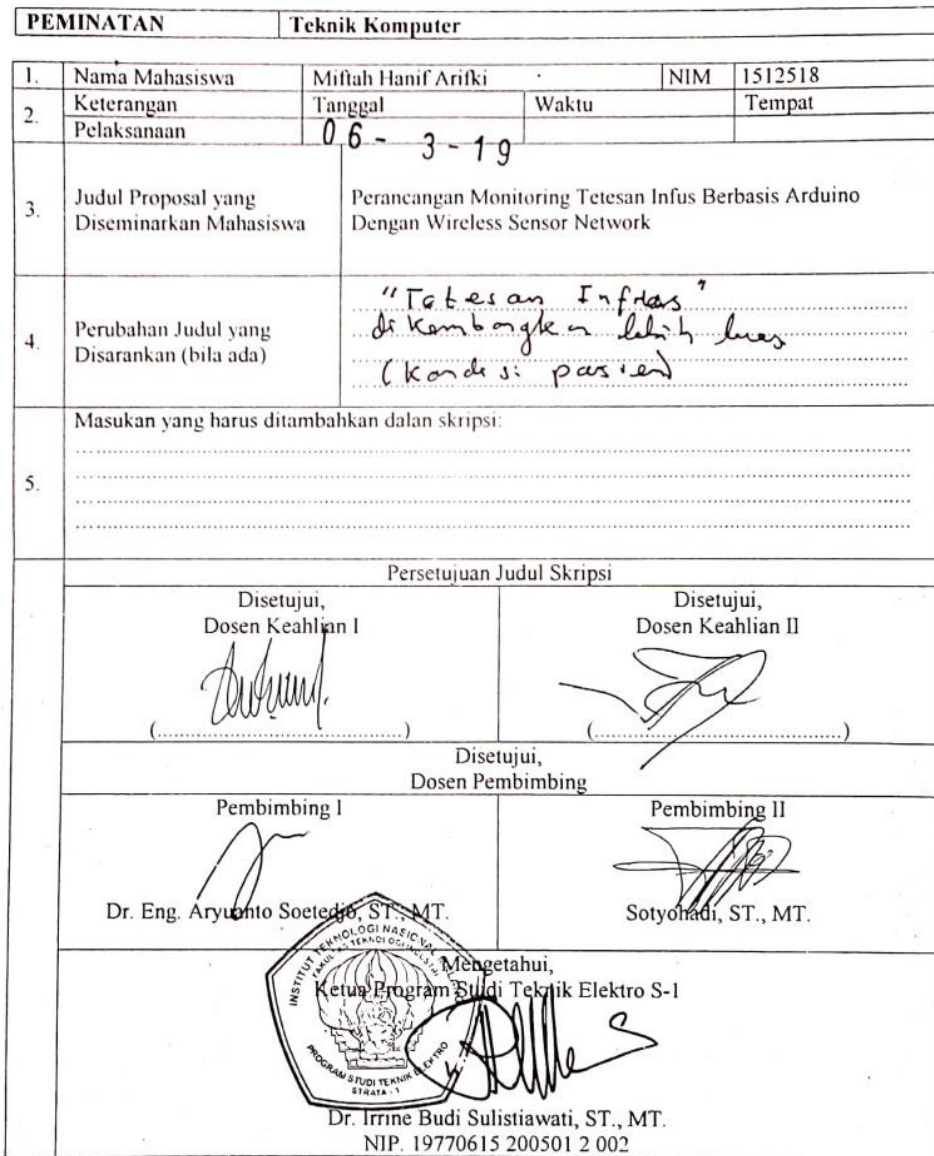 PEMINATAN Teknik Komputer
1. Nama Mahasiswa Miftah Hanif Arifki NIM 1512518
2. Keterangan Pelaksanaan Tanggal Waktu Tempat
06-3-19
3. Judul Proposal yang Diseminarkan Mahasiswa
Perancangan Monitoring Tetesan Infus Berbasis Arduino
Dengan Wireless Sensor Network
4. Perubahan Judul yang Disarankan (bila ada)
"Tetesan Infus"
dikembangkan lebih luas
(kondisi pasien)
5. Masukan yang harus ditambahkan dalan skripsi:
Persetujuan Judul Skripsi
Disetujui,
Dosen Keahlian I
Disetujui,
Dosen Keahlian II
Disetujui,
Dosen Pembimbing
Pembimbing I
Dr. Eng. Aryuanto Soetedjo, ST., MT.
Pembimbing II
Sotyohadi, ST., MT.
INSTITUT TEKNOLOGI NASIONAL
FAKULTAS TEKNOLOGI INDUSTRI
PROGRAM STUDI TEKNIK ELEKTRO
STRATA - 1
Mengetahui,
Ketua Program Studi Teknik Elektro S-1
Dr. Irrine Budi Sulistiawati, ST., MT.
NIP. 19770615 200501 2 002